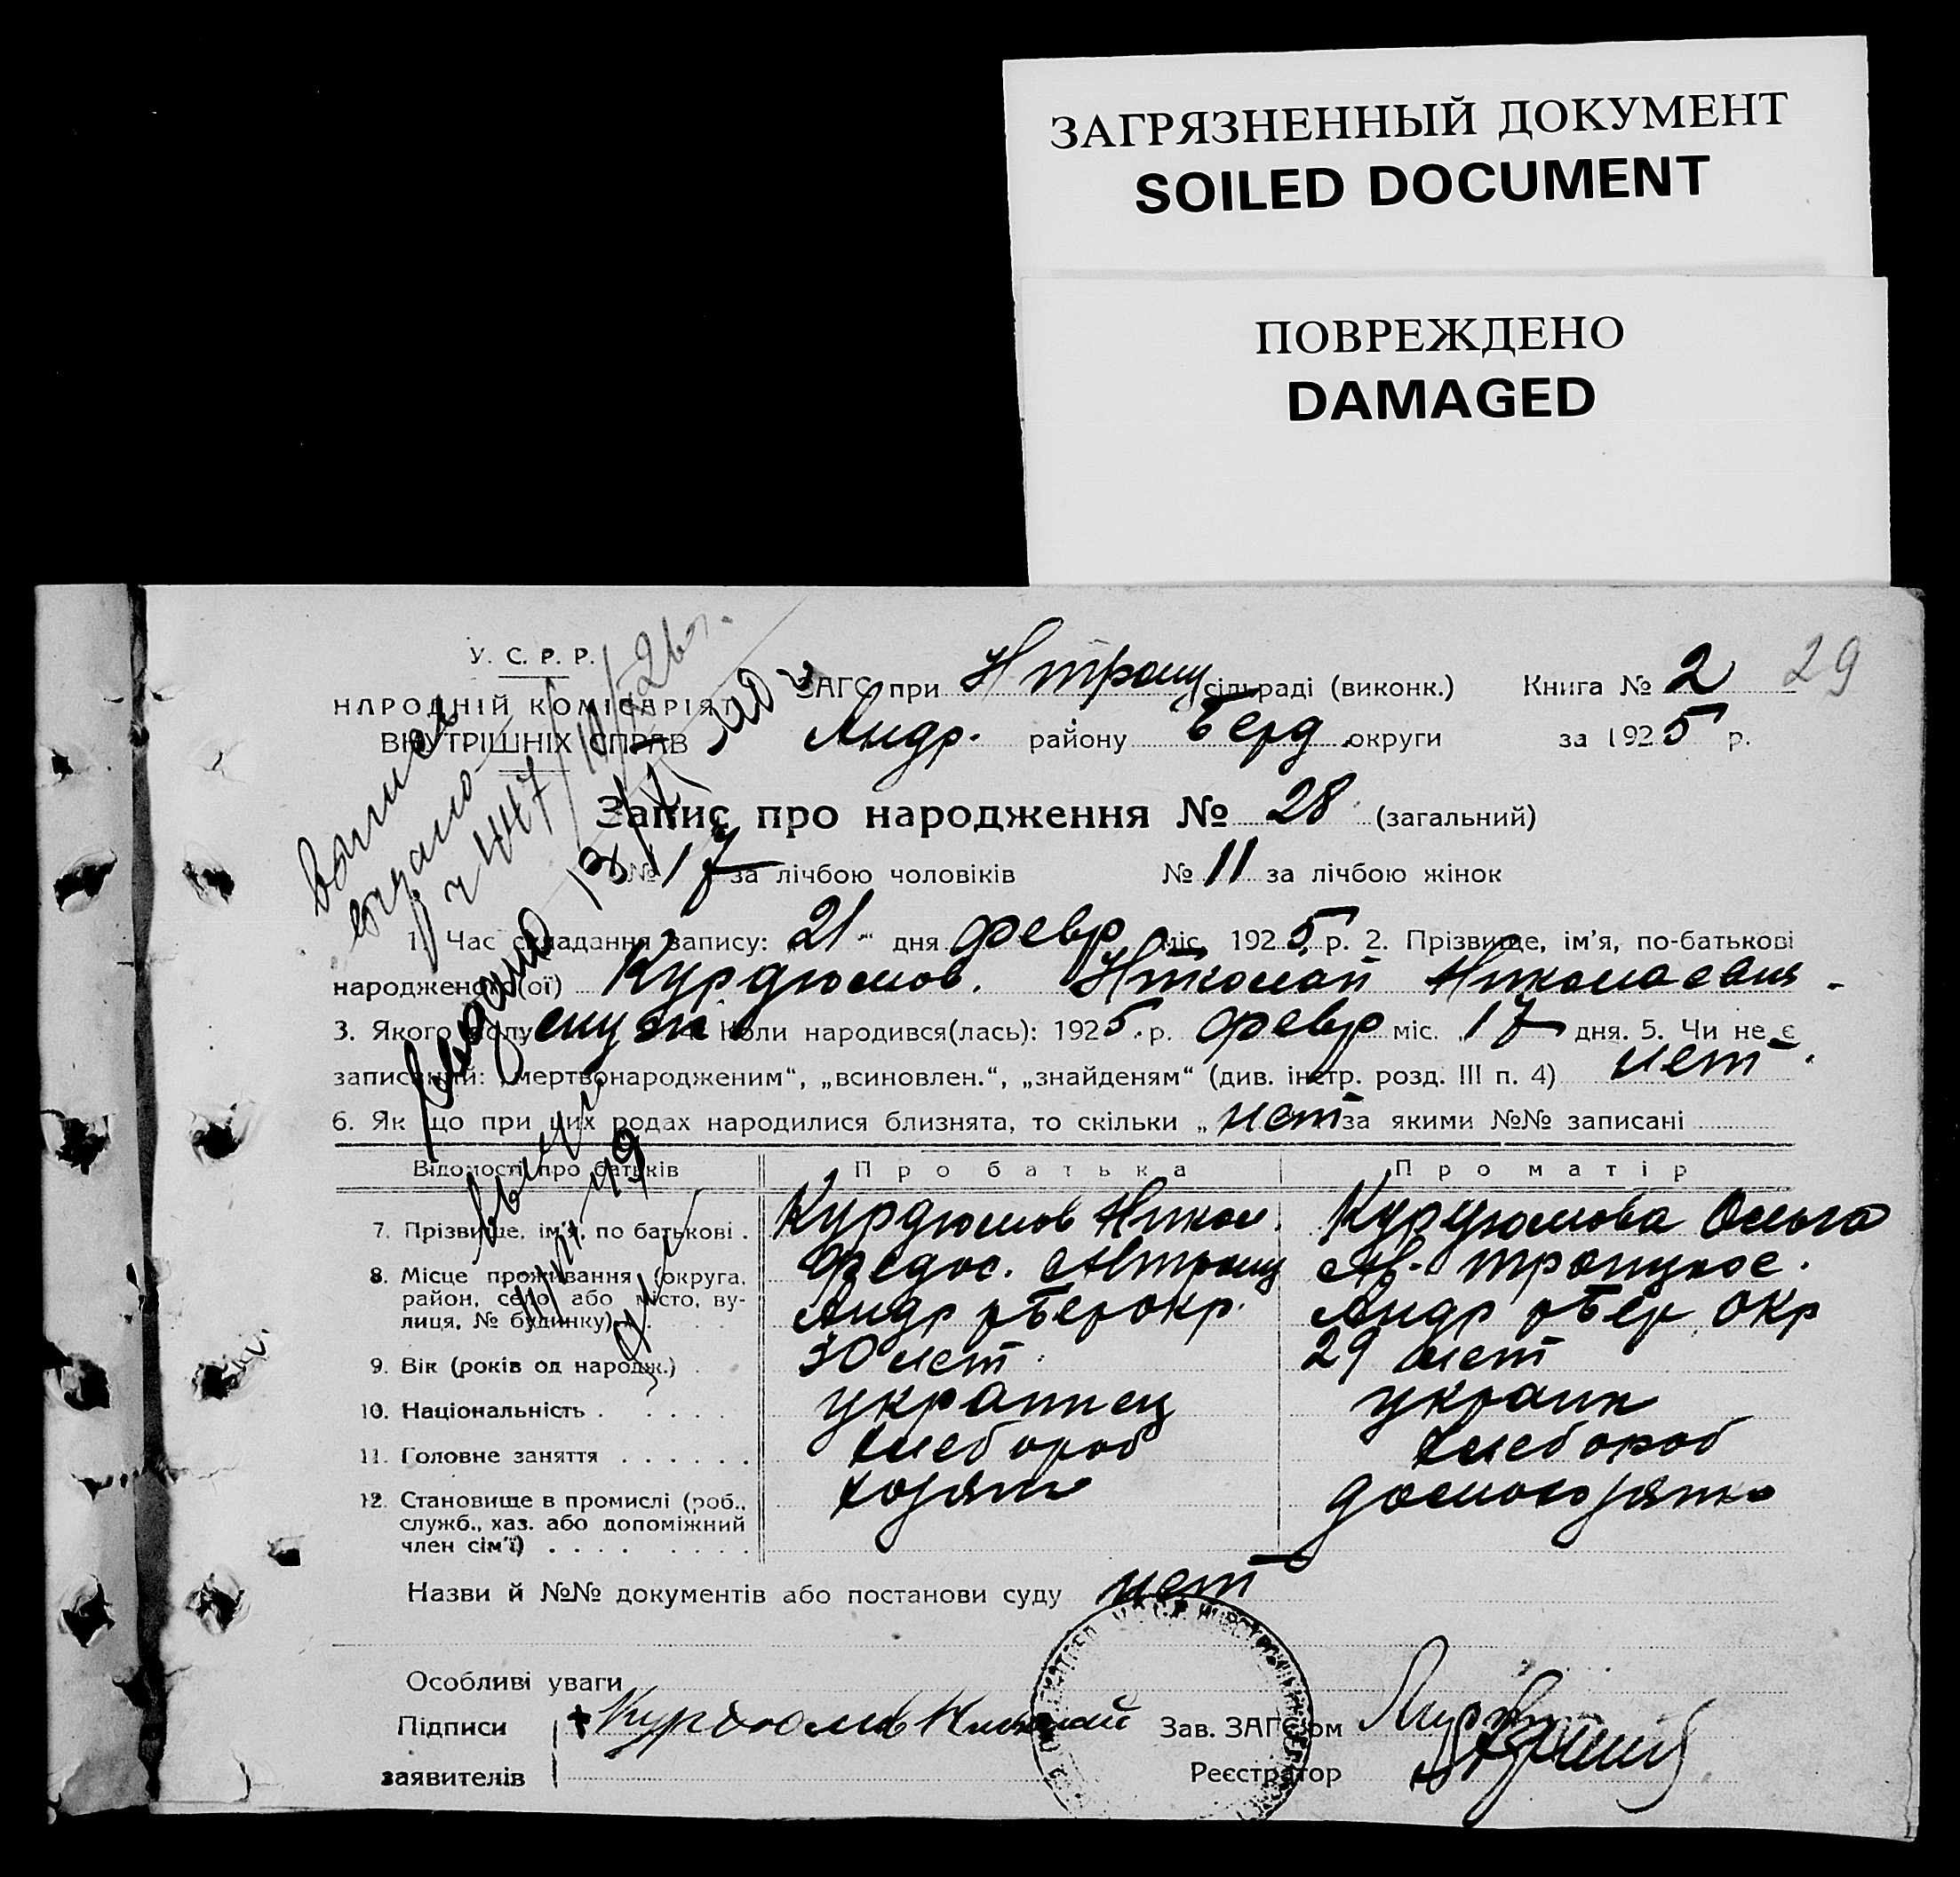 ЗАГРЯЗНЕННЫЙ ДОКУМЕНТ
SOILED DOCUMENT
ПОВРЕЖДЕНО
DAMAGED
29
У. С. Р. Р.
НАРОДНІЙ КОМІСАРІЯТ
ВНУТРІШНІХ СПРАВ
ЗАГС при Н троиц сільраді (виконк.) Книга № 2
Андр. району Берд округи за 1925 р.
Запис про народження № 28 (загальний)
№ 17 за лічбою чоловіків № 11 за лічбою жінок
1. Час складання запису: 21 дня февр міс. 1925 р. 2. Прізвище, ім’я, по-батькові
народженого(ої) Курдюмов. Николай Николаевич
3. Якого полу муж 4. Коли народився(лась): 1925 р. февр міс. 17 дня. 5. Чи не є
записаний: „мертвонародженим“, „всиновлен.“, „знайденям“ (див. інстр. розд. III п. 4) нет.
6. Як що при цих родах народилися близнята, то скільки „ нет за якими №№ записані
Відомості про батьків Про батька Про матір
7. Прізвище, ім’я, по батькові . Курдюмов Никол. Курдюмова Ольга
8. Місце проживання (округа, Федос.
район, село або місто, ву-
лиця, № будинку) Андр р Бер окр. Андр р Бер. окр
9. Вік (років од народж.) . 30 лет 29 лет
10. Національність . . . . . украинец украин
11. Головне заняття . . . . . . хлебороб хлебороб
12. Становище в промислі (роб., хозяин домохозяйка
служб., хаз. або допоміжний
член сім’ї) . . . . . . . .
Назви й №№ документів або постанови суду нет
Особливі уваги
Підписи + Курдюмов Николай Зав. ЗАГСом
заявителів Реєстратор